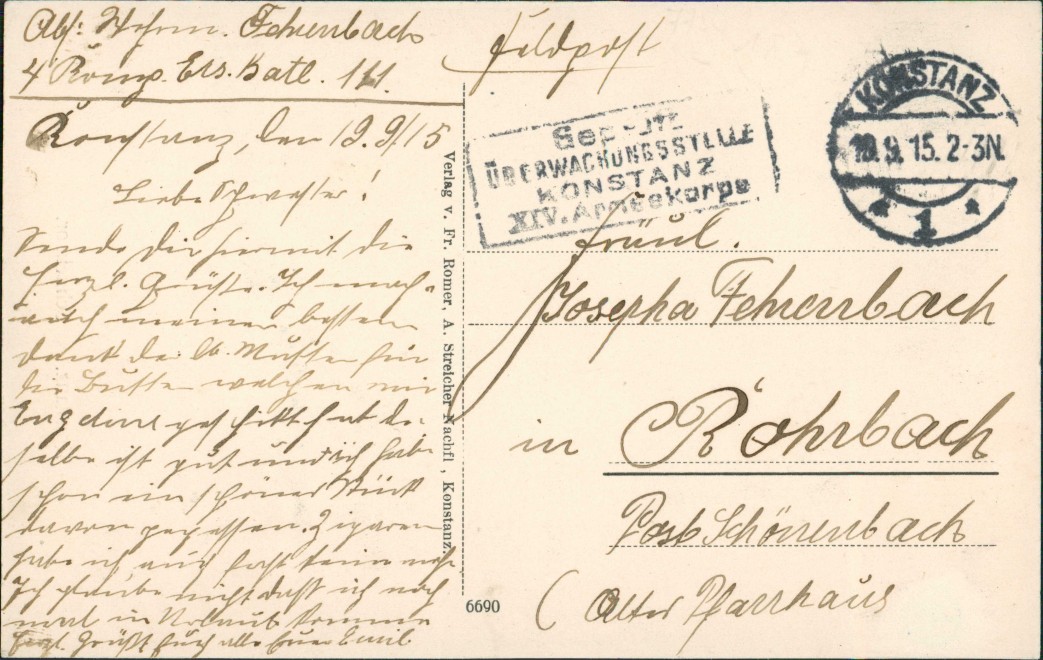 Abs: Wehrm. Fehrenbach
4 Komp. Ers. Batl. 111.
Konstanz, den 19.9/15
Liebe Schwester!
Sende dir hiermit die
herzl. Grüße. Ich mach
auch meinen besten
Dank der lb. Mutter für
die Butter welchen mir
geschickt hat die
selbe ist gut und ich habe
schon ein schönes Stück
davon gegessen. Zigaren
habe ich auch fast keine mehr
Ich glaube nicht daß ich noch
mal in Urlaub komme
Herzl. Grüßt Euch alle Euer Emil
Verlag v. Fr. Romer, A. Streicher Nachfl., Konstanz.
6690
Feldpost
Geprüft
ÜBERWACHUNGSSTELLE
KONSTANZ
XIV. Armeekorps
KONSTANZ
19.9.15. 2-3N.
* 1 *
Fräul.
Josepha Fehrenbach
in Rohrbach
Post Schönenbach
(Alter Pfarrhaus